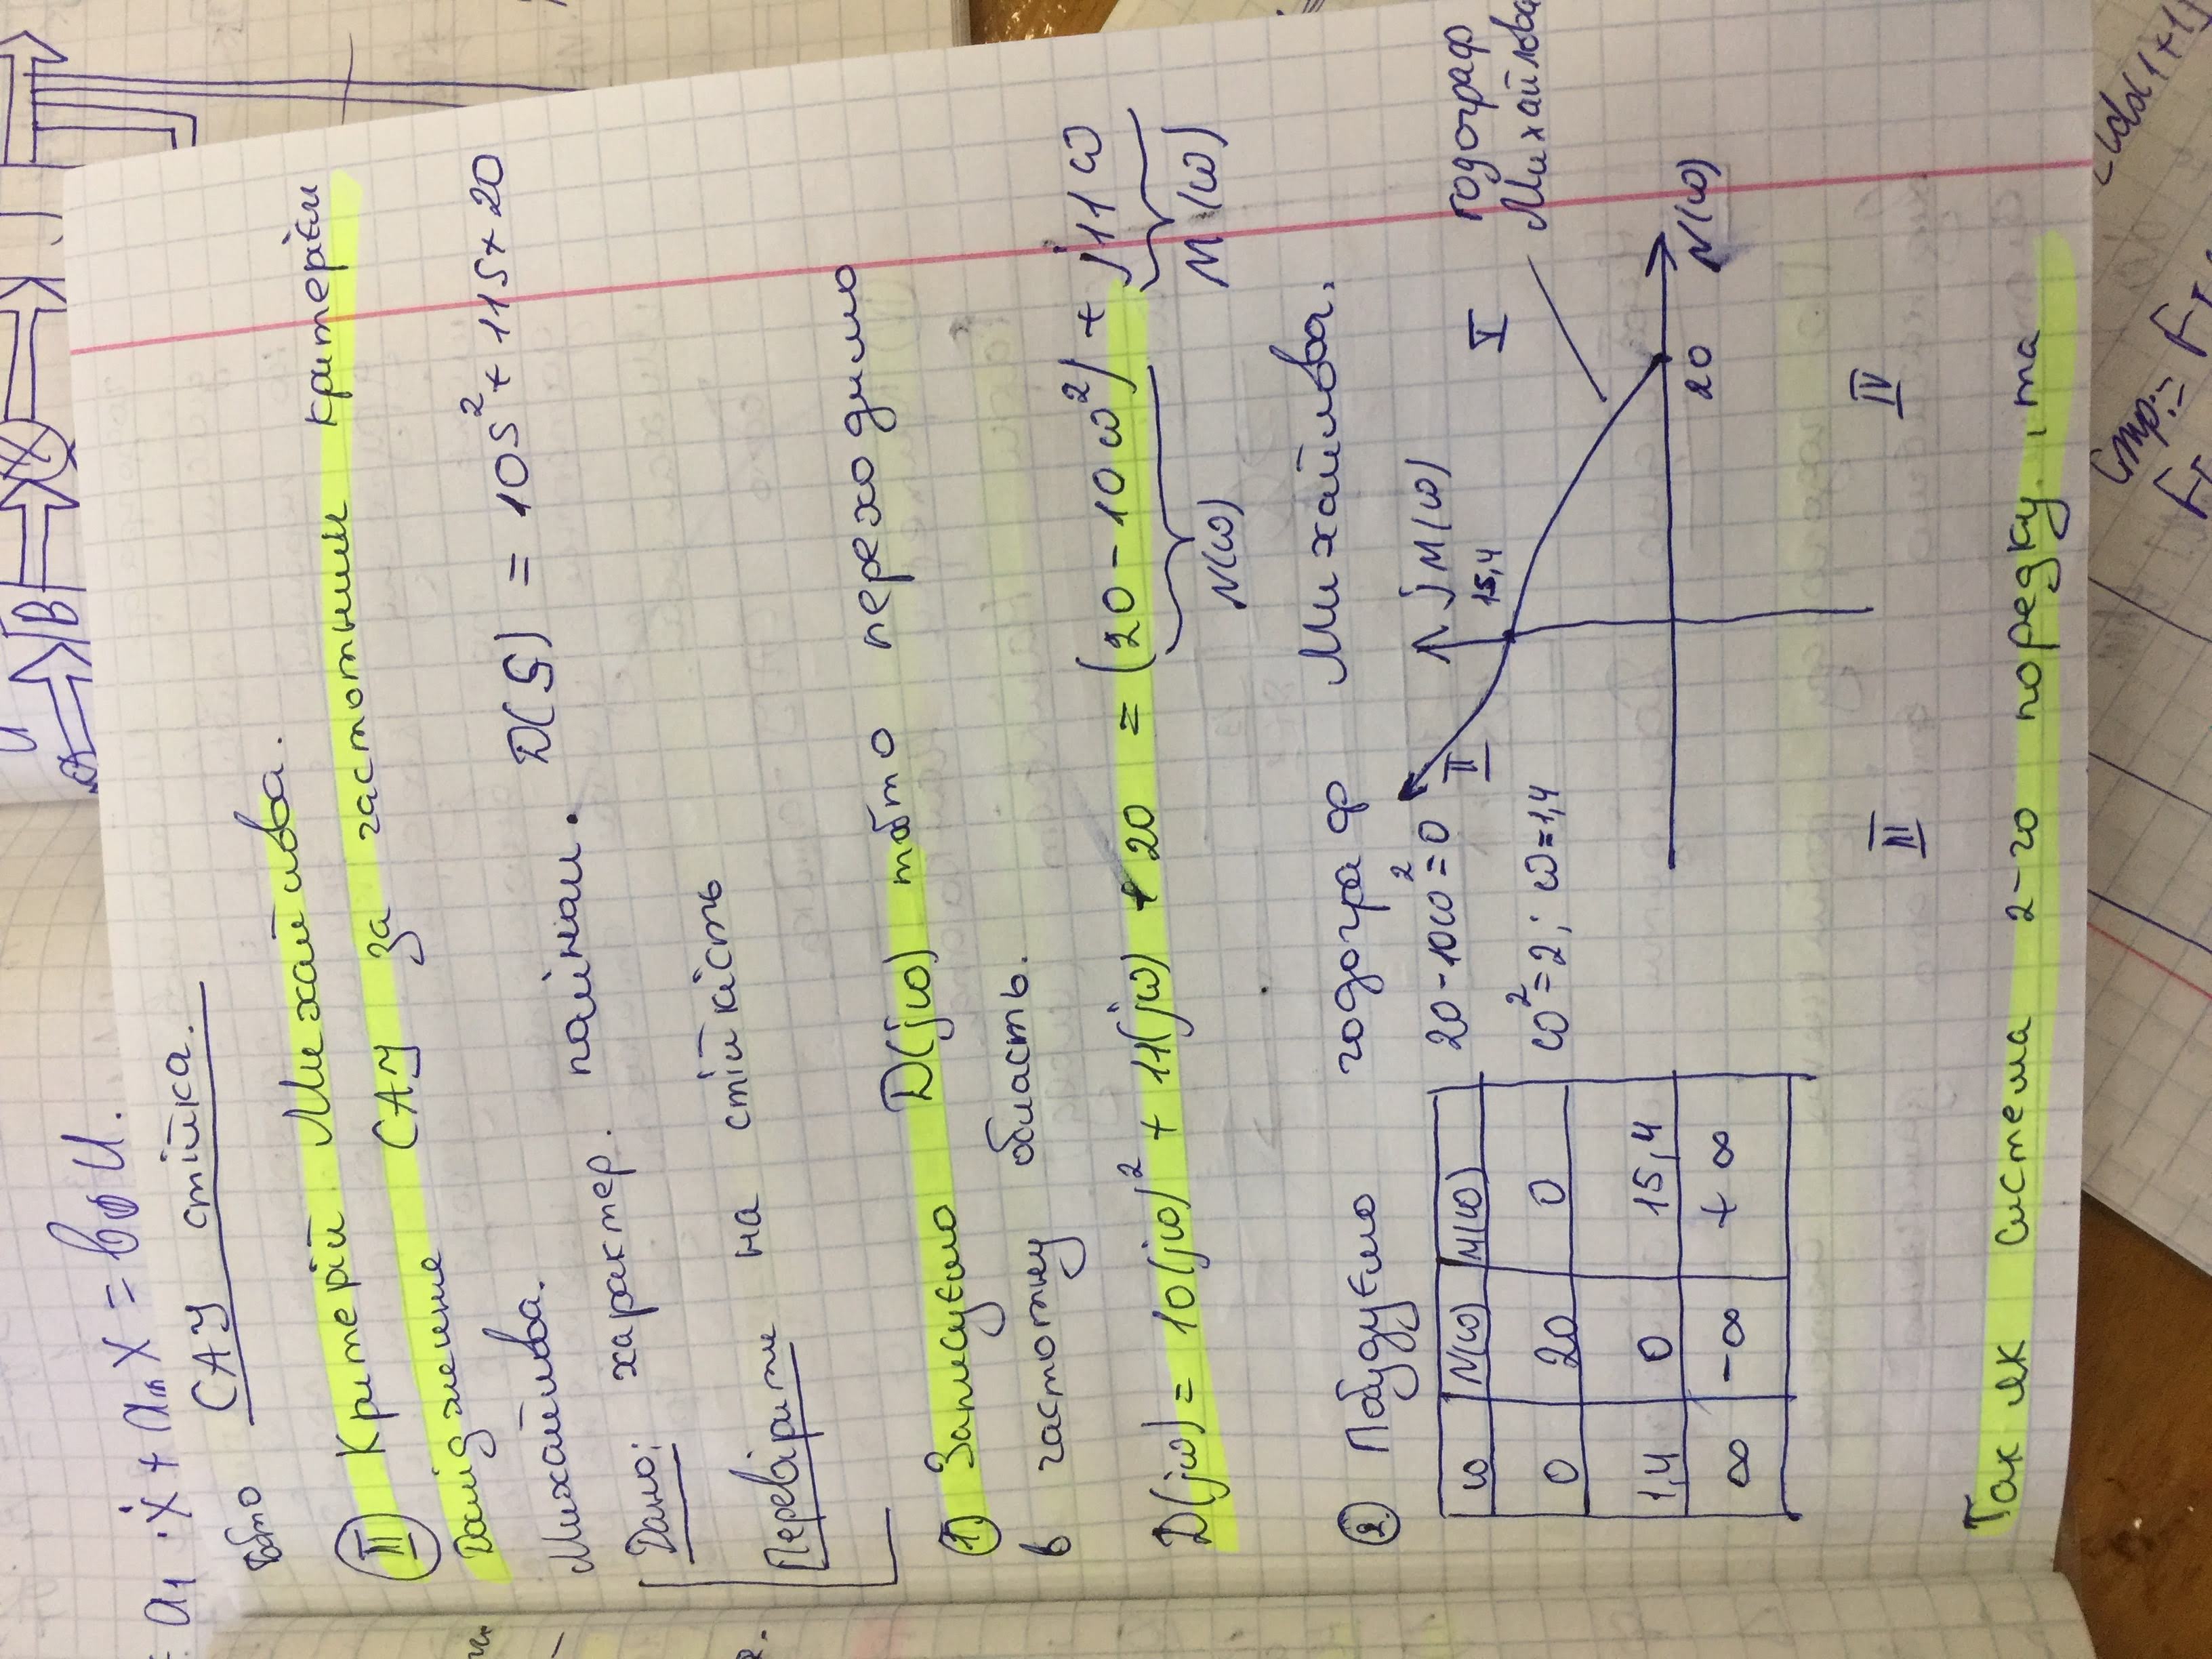 a₁ · ẋ + aₙ x = b₀ u.
B
тобто САУ стійка.
II Критерій Михайлова.
Дослідження САУ за частотним критерієм
Михайлова.
Дано: характер. поліном. D(S) = 10S² + 11S + 20
Перевірити на стійкість
1) Записуємо D(jω) тобто переходимо
в частотну область.
D(jω) = 10(jω)² + 11(jω) + 20 = (20 - 10ω²) + j11ω
N(ω) M(ω)
2. Побудуємо годограф Михайлова.
ω N(ω) M(ω)
0 20 0
1,4 0 15,4
∞ -∞ +∞
20 - 10ω² = 0
ω² = 2; ω = 1,4
jM(ω)
II
15,4
I
годограф
Михайлова
20 N(ω)
III IV
Так як система 2-го порядку, та